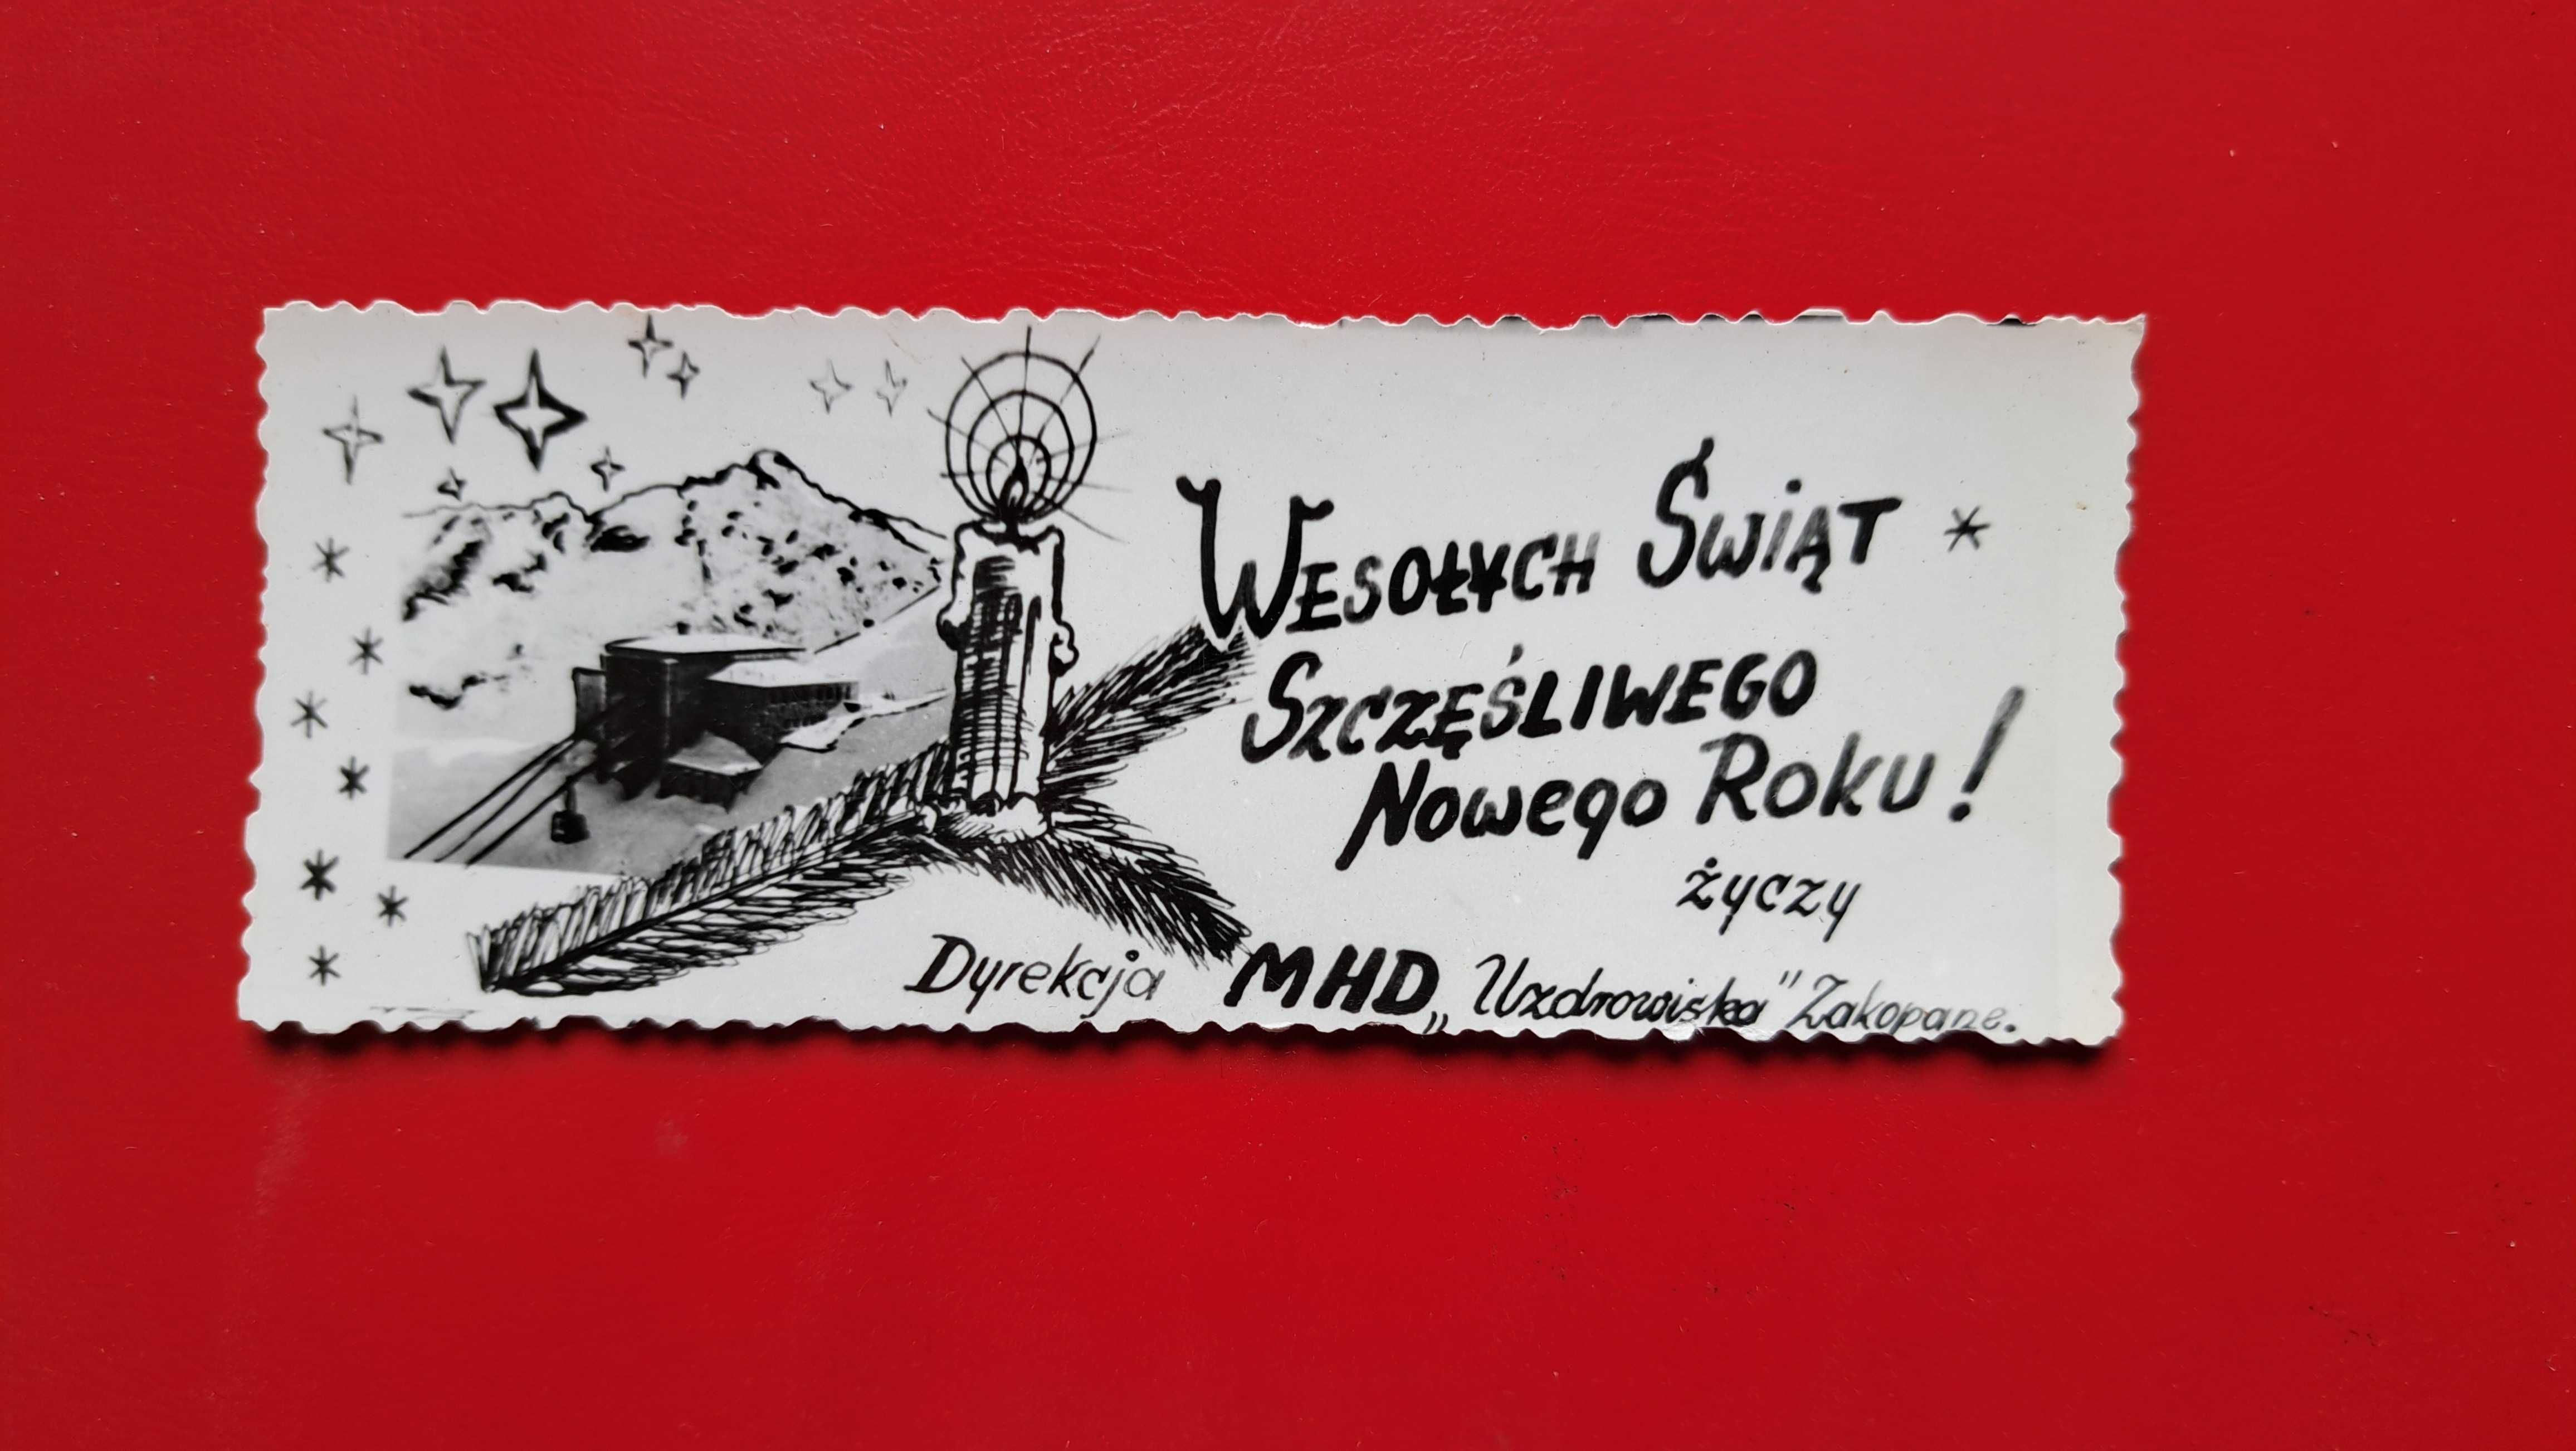 Wesołych Świąt
Szczęśliwego
Nowego Roku!
życzy
Dyrekcja MHD „Uzdrowiska" Zakopane.